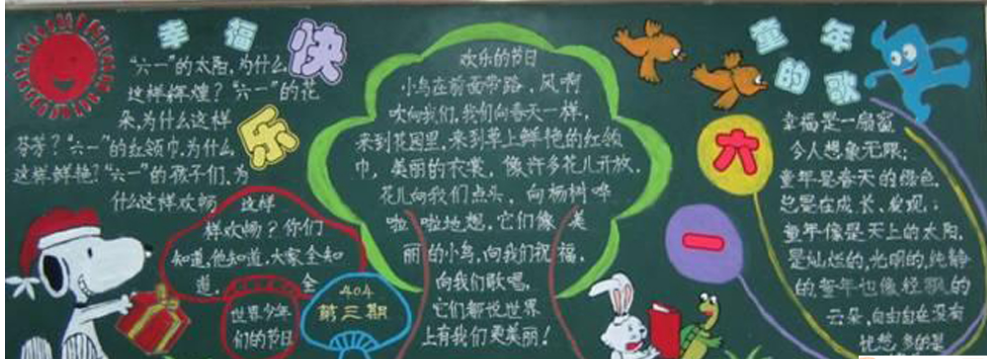 幸福
快
乐
“六一”的太阳,为什么
这样辉煌?“六一”的花
朵,为什么这样
芬芳?“六一”的红领巾,为什么
这样鲜艳?“六一”的孩子们,为
什么这样欢畅 这样
样欢畅?你们
知道,他知道,大家全知
道。 全
世界少年
们的节日
404
第三期
欢乐的节日
小鸟在前面带路,风啊
吹向我们,我们向春天一样,
来到花园里,来到草上鲜艳的红领
巾,美丽的衣裳,像许多花儿开放,
花儿向我们点头,向杨树哗
啦啦地想,它们像 美
丽的小鸟,向我们祝福,
向我们歌唱,
它们都说世界
上有我们更美丽!
童年
的歌
六
一
幸福是一扇窗
令人想象无限;
童年是春天的绿色,
总是在成长、发现;
童年像是天上的太阳,
是灿烂的,光明的,纯静
的,童年也像轻飘的
云朵,自由自在没有
忧愁,多的是